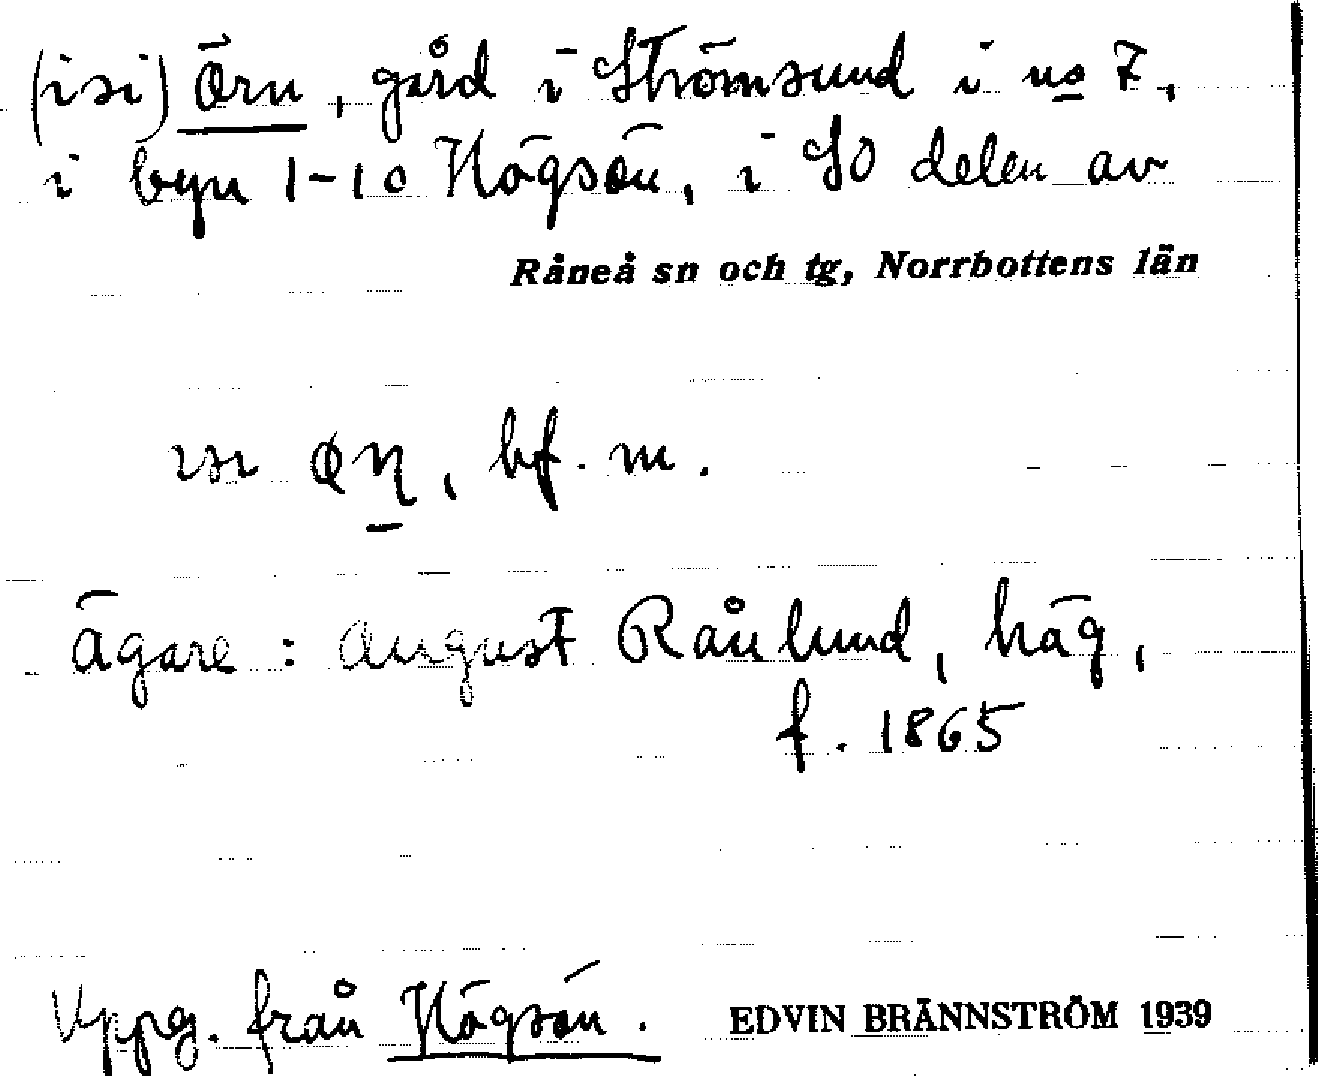 (isi) Örn, gård i Strömsund i no 7,
i byn 1-10 Högsön, i SO delen av
Råneå sn och tg, Norrbottens län
bf. m.
ägare: August Rånlund, häg,
f. 1865
Uppg. från Högsön.
EDVIN BRÄNNSTRÖM 1939